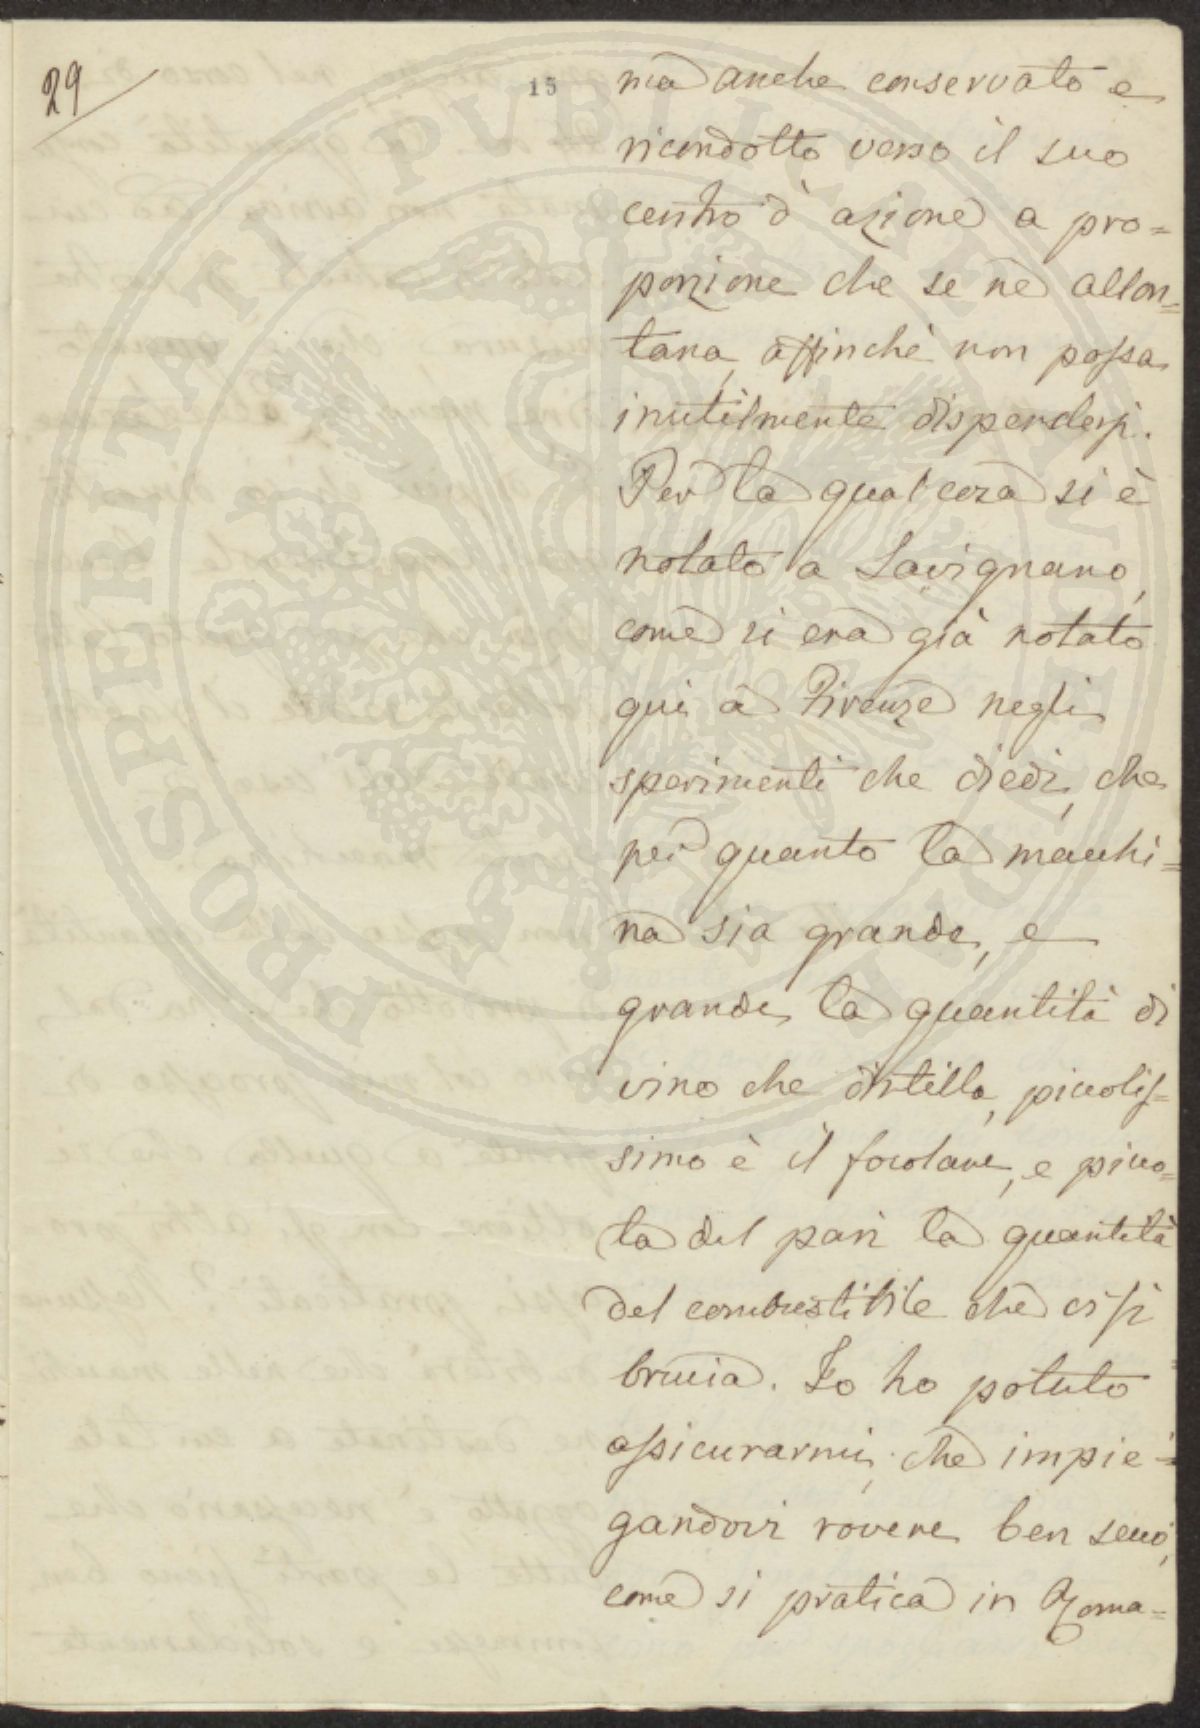 29
15
ma anche conservato e
ricondotto verso il suo
centro d'azione a pro=
porzione che se ne allon=
tana, affinchè non possa
inutilmente disperdersi.
Per la qual cosa si è
notato a Savignano,
come si era già notato
qui a Firenze negli
sperimenti che diedi, che
per quanto la macchi=
na sia grande, e
grande la quantità di
vino che distilla, piccolis=
simo è il focolare, e picco=
la del pari la quantità
del combustibile che vi si
brucia. Io ho potuto
assicurarmi, che impie=
gandovi rovere ben secco,
come si pratica in Roma=
PROSPERITATI PVBLICAE AVGENDAE